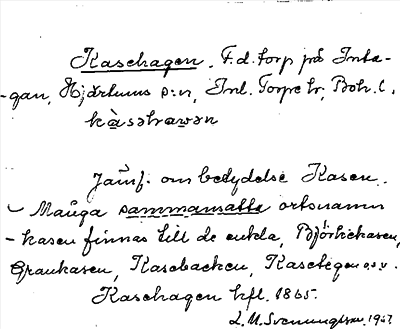 Kasehagen. F.d. torp på Inta-
-gan, Hjärtums s:n, Inl. Torpe hr, Boh. l.
Jämf. om betydelse Kasen.
Många sammansatta ortsnamn
-kasen finnas till de enkla, Björkekasen,
Grankasen, Kasebacken, Kasetegen o.s.v.
Kasehagen hfl. 1865.